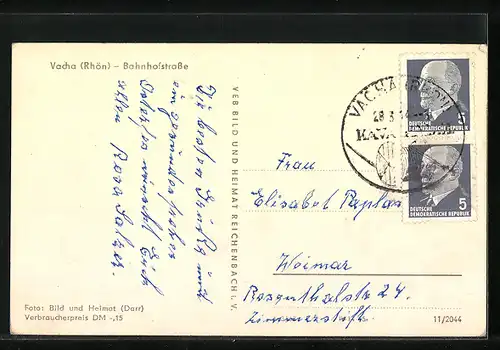 Vacha (Rhön) – Bahnhofstraße
Die besten Grüße und
ein gesundes frohes
Osterfest wünscht Euch
allen Rosa Salzer.
VEB BILD UND HEIMAT REICHENBACH i. V.
VACHA (RHÖN)
28.3.
5
DEUTSCHE
DEMOKRATISCHE REPUBLIK
5
DEUTSCHE
DEMOKRATISCHE REPUBLIK
Frau
Elisabet
Weimar
24.
Foto: Bild und Heimat (Darr)
Verbraucherpreis DM -,15
11/2044